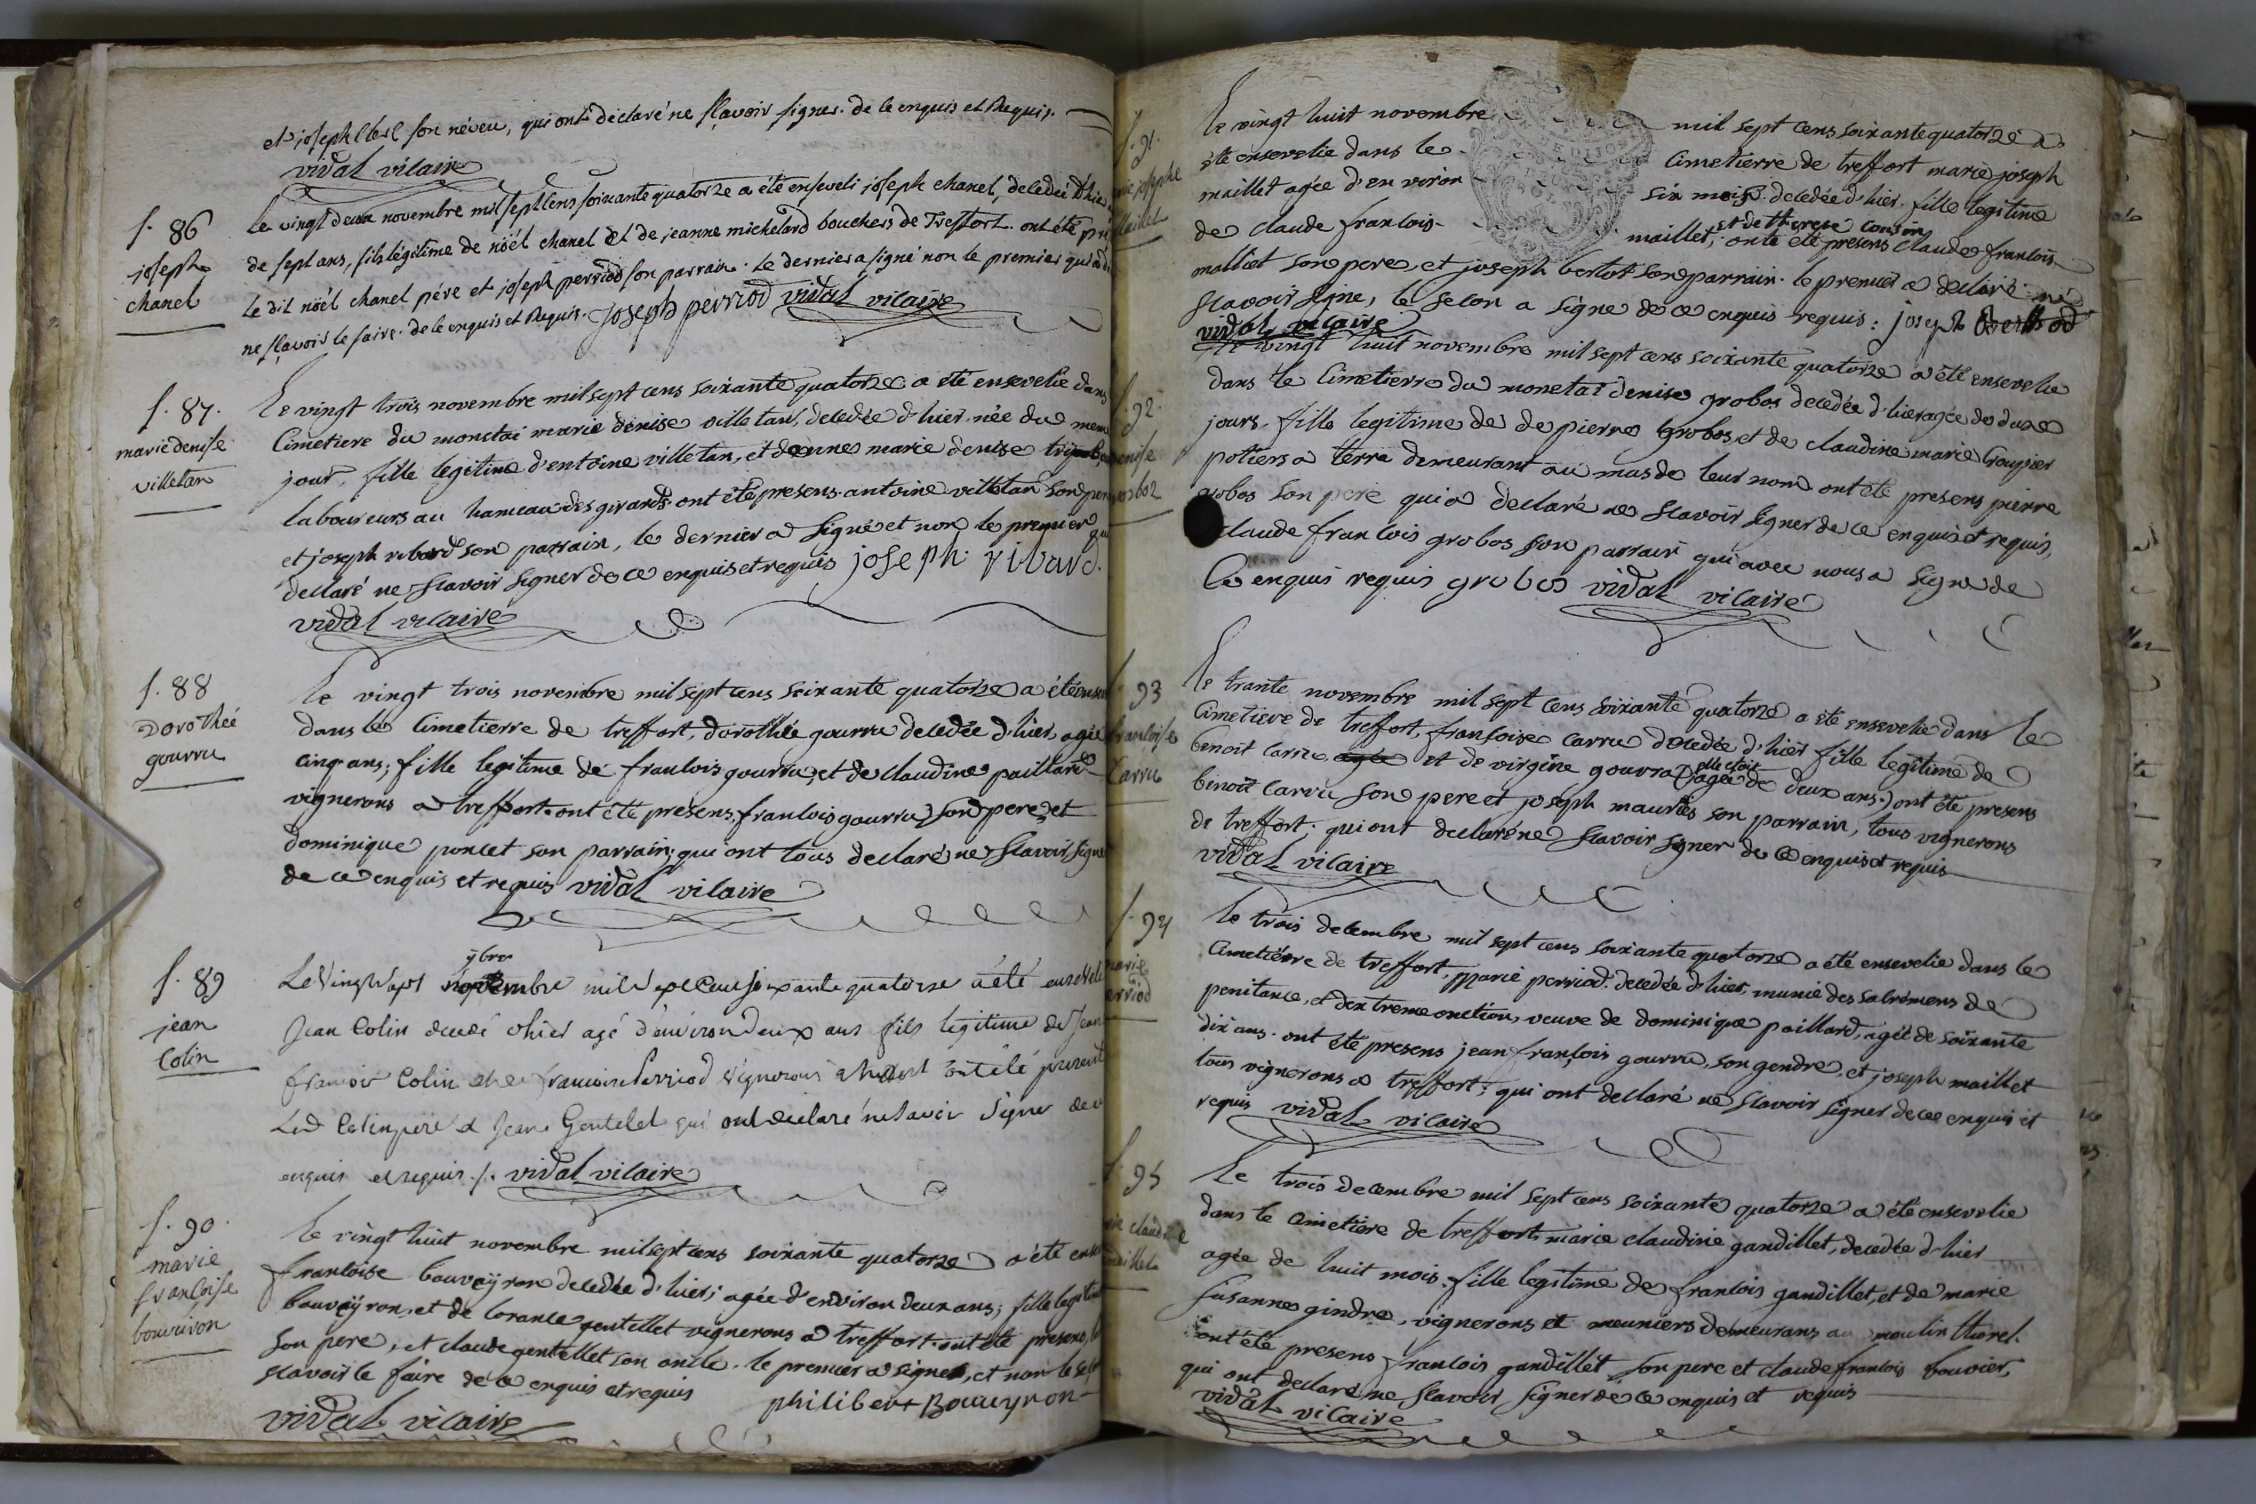 et joseph son néveu, qui ont déclaré ne sçavoir signer. de le enquis et Requis.
vidal vicaire
f. 86
joseph
chanel
Le vingt deux novembre mil sept cens soixante quatorze a été enseveli joseph chanel, decedée d'hier
de sept ans, fils légitime de noël chanel et de jeanne michelard bouchers de Treffort. ont été
Le dit noël chanel pére et joseph perriod son parrain. Le dernier a signé non le premier qui a
ne sçavoir le faire. de le enquis et Requis. joseph perriod vidal vicaire
f. 87.
marie denise
villetan
Le vingt trois novembre mil sept cens soixante quatorze a été ensevelie dans
Cimetiere du monetai marie denise villetan, decedée d'hier née du mem
jour, fille legitime d'entoine villetan, et de anne marie denise
laboureurs au hameau des girards. ont été presens antoine villetan son pere
et joseph ribard son parrain, le dernier a signé et non le premier qui
declaré ne sçavoir signer de ce enquis et requis joseph ribard.
vidal vicaire
f. 88
Dorothée
gourru
le vingt trois novembre mil sept cens soixante quatorze a été
dans le Cimetierre de treffort, dorothée gourru decedée d'hier, agée
cinq ans; fille legitime de francois gourru, et de claudine paillard
vignerons a treffort. ont été presens, francois gourru son pere, et
dominique poncet son parrain; qui ont tous declaré ne sçavoir signer
de ce enquis et requis vidal vicaire
f. 89
jean
Colin
9bre
Le vingt sept mil sept cens soixante quatorze a été enseveli
Jean Colin decedé d'hier agé d'environ deux ans fils legitime de Jean
francois Colin et de francoise Perriod vignerons a treffort ont été present
Led Colin pere et Jean Gentelet qui ont declaré ne savoir signer de ce
enquis et requis ./. vidal vicaire
f. 90.
marie
francoise
bouveiron
le vingt huit novembre mil sept cens soixante quatorze a été
francoise bouveyron decedée d'hier; agée d'environ deux ans; fille
bouveyron, et de lorance gentellet vignerons a treffort. ont été presens,
son pere, et claude gentellet son oncle. le premier a signer, et non le
scavoir le faire de ce enquis et requis philibert Bouveyron
vidal vicaire
f. 91.
Le vingt huit novembre mil sept cens soixante quatorze a
été ensevelie dans le Cimetierre de treffort marie joseph
maillet agée d'environ six mois. decedée d'hier. fille legitime
de claude francois et de therese consin
maillet, ont été presens claude francois
malliet son pere, et joseph bertot son parrain. le premier a declaré ne
scavoir signe, le secon a signe de ce enquis requis: joseph Berthod
vidal vicaire
f. 92.
denise
groboz
Le vingt huit novembre mil sept cens soixante quatorze a été ensevelie
dans le Cimetierre du monetai denise grobos decedée d'hier agée de
jours, fille legitime de de pierre grobos, et de claudine marie
potiers a terre demeurant au mas de leur nom ont été presens pierre
grobos son pere qui a declaré ne scavoir signer de ce enquis et requis,
claude francois grobos son parrain qui avec nous a signe de
Ce enquis requis grobos vidal vicaire
f. 93
francoise
Carru
le trante novembre mil sept cens soixante quatorze a été ensevelie dans le
Cimetiere de treffort, francoise carru decedée d'hier fille legitime de
benoit carru agée et de virgine gourru (elle etoit agée de deux ans.) ont été presens
benoit carru son pere et joseph son parrain, tous vignerons
de treffort; qui ont declaré ne scavoir signer de ce enquis et requis
vidal vicaire
f. 94
marie
perriod
le trois decembre mil sept cens soixante quatorze a été ensevelie dans le
Cimetiérre de treffort, marie perriod. decedée d'hier, munie des sacremens de
penitance, et dextreme onction, veuve de dominique paillard, agée de soixante
dix ans. ont été presens jean françois gourru, son gendre, et joseph maillet
tous vignerons a treffort; qui ont declaré ne scavoir signer de ce enquis et
requis vidal vicaire
f. 95
Le trois decembre mil sept cens soixante quatorze a été ensevelie
dans le cimetiére de treffort marie claudine gandillet, decedée d'hier
agée de huit mois. fille legitime de francois gandillet, et de marie
susanne gindre, vignerons et meuniers demeurans au moulin thorel.
ont été presens francois gandillet son pere et claude francois bouvier,
qui ont declaré ne scavoir signer de ce enquis et requis
vidal vicaire